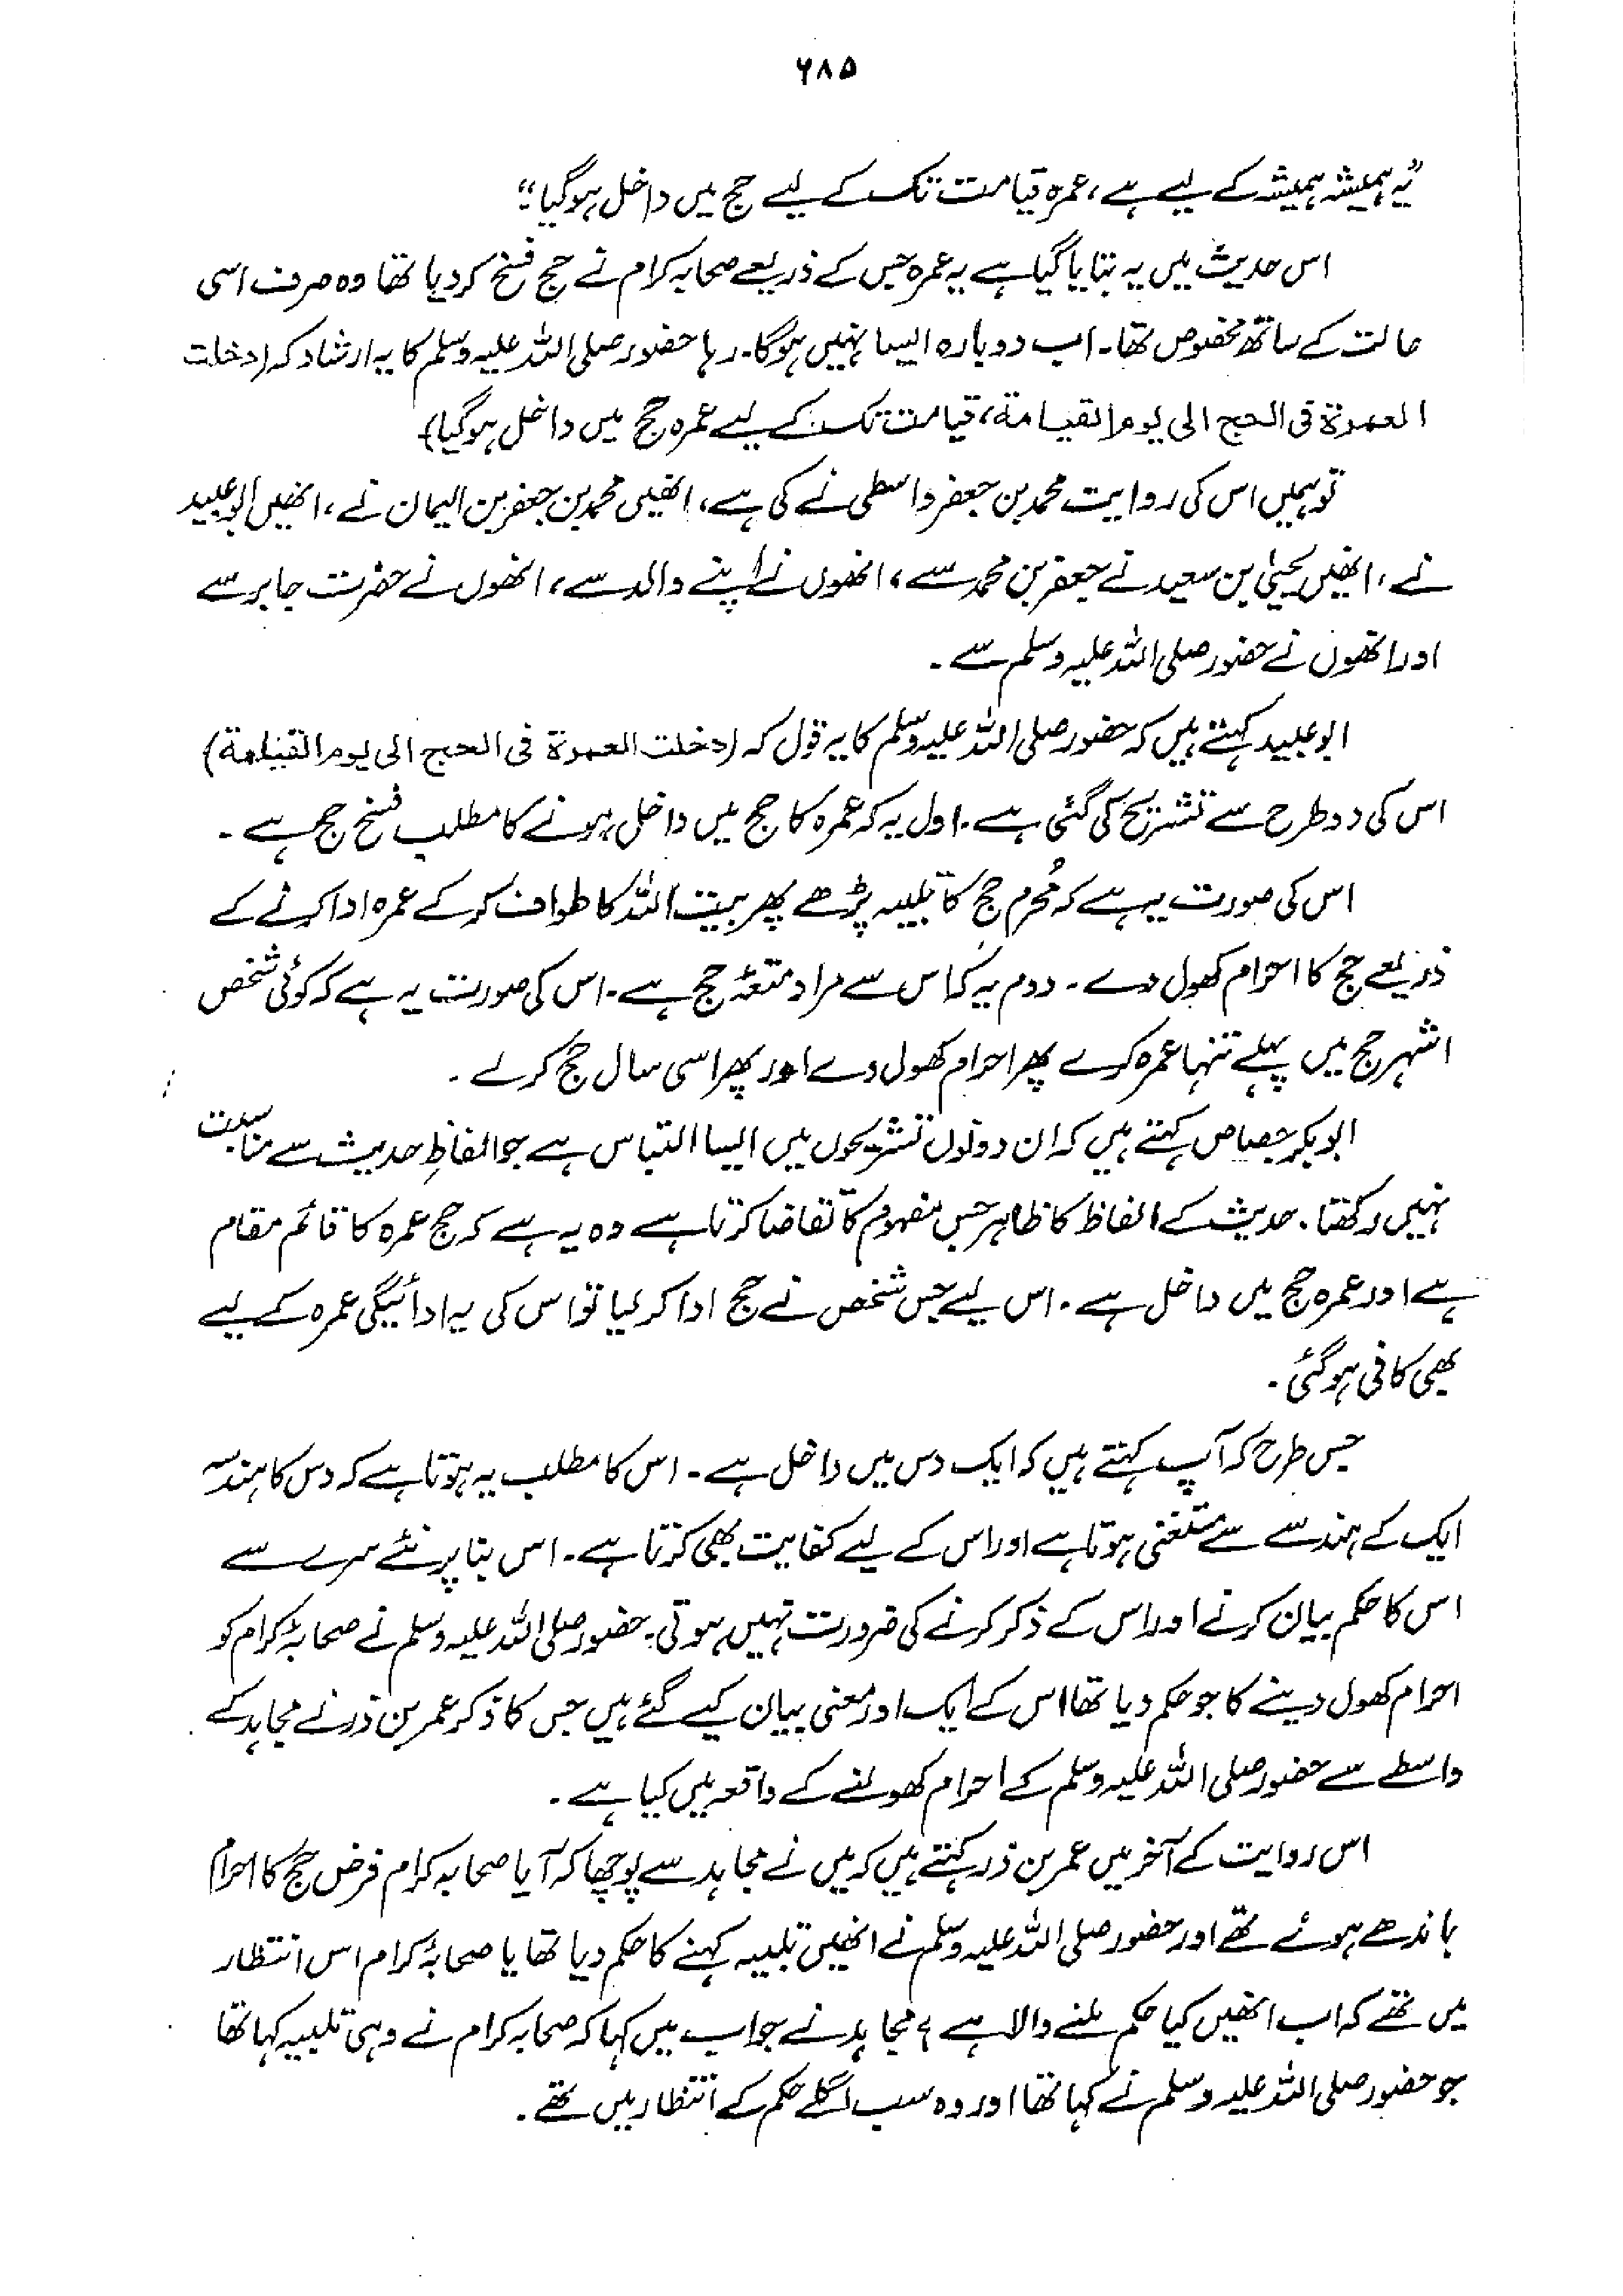 ۶۸۵
”یہ ہمیشہ ہمیشہ کے لیے ہے، عمرہ قیامت تک کے لیے حج میں داخل ہوگیا“
اس حدیث میں یہ بتایا گیا ہے یہ عمرہ جس کے ذریعے صحابہ کرام نے حج فسخ کر دیا تھا وہ صرف اسی
حالت کے ساتھ مخصوص تھا۔ اب دوبارہ ایسا نہیں ہوگا۔ رہا حضور صلی اللہ علیہ وسلم کا یہ ارشاد کہ (دخلت
العمرة فی الحج الی یوم القیامة، قیامت تک کے لیے عمرہ حج میں داخل ہوگیا)
تو ہمیں اس کی روایت محمد بن جعفر واسطی نے کی ہے، انھیں محمد بن جعفر بن الیمان نے، انھیں ابو عبید
نے، انھیں یحییٰ بن سعید نے جعفر بن محمد سے، انھوں نے اپنے والد سے، انھوں نے حضرت جابر سے
اور انھوں نے حضور صلی اللہ علیہ وسلم سے۔
ابو عبید کہتے ہیں کہ حضور صلی اللہ علیہ وسلم کا یہ قول کہ (دخلت العمرة فی الحج الی یوم القیامة)
اس کی دو طرح سے تشریح کی گئی ہے۔ اول یہ کہ عمرہ کا حج میں داخل ہونے کا مطلب فسخ حج ہے۔
اس کی صورت یہ ہے کہ مُحرم حج کا تلبیہ پڑھے پھر بیت اللہ کا طواف کر کے عمرہ ادا کرنے کے
ذریعے حج کا احرام کھول دے۔ دوم یہ کہ اس سے مراد متعۂ حج ہے۔ اس کی صورت یہ ہے کہ کوئی شخص
اشہر حج میں پہلے تنہا عمرہ کرے پھر احرام کھول دے اور پھر اسی سال حج کرلے۔
ابو بکر جصاص کہتے ہیں کہ ان دونوں تشریحوں میں ایسا التباس ہے جو الفاظِ حدیث سے مناسبت
نہیں رکھتا۔ حدیث کے الفاظ کا ظاہر جس مفہوم کا تقاضا کرتا ہے وہ یہ ہے کہ حج عمرہ کا قائم مقام
ہے اور عمرہ حج میں داخل ہے۔ اس لیے جس شخص نے حج ادا کر لیا تو اس کی یہ ادائیگی عمرہ کے لیے
بھی کافی ہوگئی۔
جس طرح کہ آپ کہتے ہیں کہ ایک دس میں داخل ہے۔ اس کا مطلب یہ ہوتا ہے کہ دس کا ہندسہ
ایک کے ہندسے سے مستغنی ہوتا ہے اور اس کے لیے کفایت بھی کرتا ہے۔ اس بنا پر نئے سرے سے
اس کا حکم بیان کرنے اور اس کے ذکر کرنے کی ضرورت نہیں ہوتی۔ حضور صلی اللہ علیہ وسلم نے صحابۂ کرام کو
احرام کھول دینے کا جو حکم دیا تھا اس کے ایک اور معنی بیان کیے گئے ہیں جس کا ذکر عمر بن ذر نے مجاہد کے
واسطے سے حضور صلی اللہ علیہ وسلم کے احرام کھولنے کے واقعہ میں کیا ہے۔
اس روایت کے آخر میں عمر بن ذر کہتے ہیں کہ میں نے مجاہد سے پوچھا کہ آیا صحابہ کرام فرض حج کا احرام
باندھے ہوئے تھے اور حضور صلی اللہ علیہ وسلم نے انھیں تلبیہ کہنے کا حکم دیا تھا یا صحابۂ کرام اس انتظار
میں تھے کہ اب انھیں کیا حکم ملنے والا ہے؟ مجاہد نے جواب میں کہا کہ صحابہ کرام نے وہی تلبیہ کہا تھا
جو حضور صلی اللہ علیہ وسلم نے کہا تھا اور وہ سب اگلے حکم کے انتظار میں تھے۔